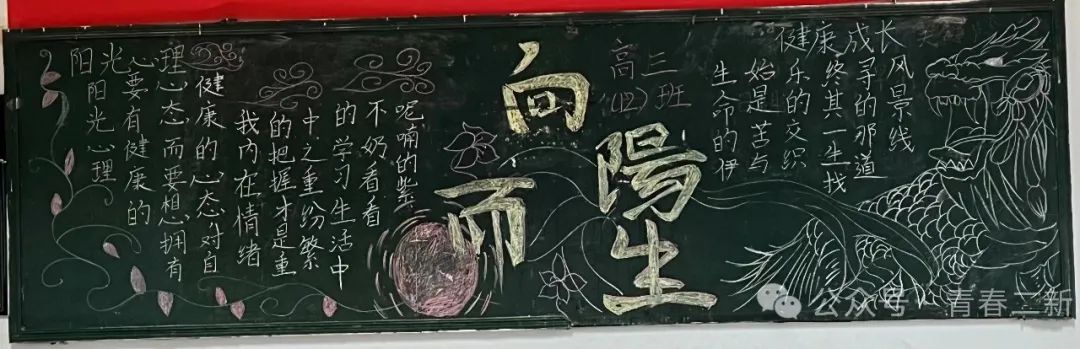 阳光心理
阳光心理
要有健康的
心态而要想拥有
健康的心态对自
我内在情绪
的把握才是重
中之重纷繁
的学习生活中
不奶看看
呢喃的紫
向
陽
而
生
高三
(12)班
健康成长
生命的伊
始是苦与
乐的交织
终其一生找
寻的那道
风景线
公众号·青春二新